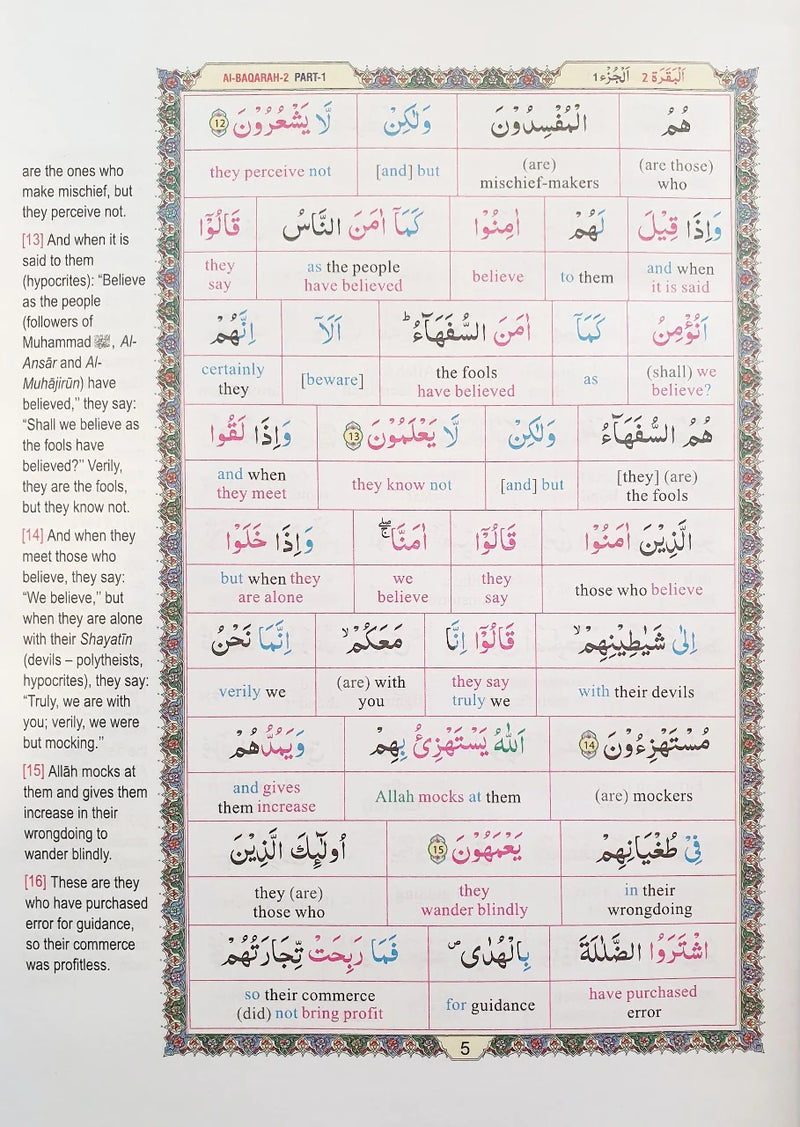 Al-BAQARAH-2 PART-1
اَلْجُزْء ١ اَلْبَقَرَة ٢
are the ones who
make mischief, but
they perceive not.
[13] And when it is
said to them
(hypocrites): “Believe
as the people
(followers of
Muhammad ﷺ, Al-
Ansār and Al-
Muhājirūn) have
believed,” they say:
“Shall we believe as
the fools have
believed?” Verily,
they are the fools,
but they know not.
[14] And when they
meet those who
believe, they say:
“We believe,” but
when they are alone
with their Shayatīn
(devils – polytheists,
hypocrites), they say:
“Truly, we are with
you; verily, we were
but mocking.”
[15] Allāh mocks at
them and gives them
increase in their
wrongdoing to
wander blindly.
[16] These are they
who have purchased
error for guidance,
so their commerce
was profitless.
هُمُ الْمُفْسِدُوْنَ وَلٰكِنْ لَّا يَشْعُرُوْنَ 12
(are those) who (are) mischief-makers [and] but they perceive not
وَاِذَا قِيْلَ لَهُمْ اٰمِنُوْا كَمَآ اٰمَنَ النَّاسُ قَالُوْٓا
and when it is said to them believe as the people have believed they say
اَنُؤْمِنُ كَمَآ اٰمَنَ السُّفَهَآءُ ؕ اَلَآ اِنَّهُمْ
(shall) we believe? as the fools have believed [beware] certainly they
هُمُ السُّفَهَآءُ وَلٰكِنْ لَّا يَعْلَمُوْنَ 13 وَاِذَا لَقُوا
[they] (are) the fools [and] but they know not and when they meet
الَّذِيْنَ اٰمَنُوْا قَالُوْٓا اٰمَنَّا ۖۚ وَاِذَا خَلَوْا
those who believe they say we believe but when they are alone
اِلٰى شَيٰطِيْنِهِمْ ۙ قَالُوْٓا اِنَّا مَعَكُمْ ۙ اِنَّمَا نَحْنُ
with their devils they say truly we (are) with you verily we
مُسْتَهْزِءُوْنَ 14 اَللّٰهُ يَسْتَهْزِئُ بِهِمْ وَيَمُدُّهُمْ
(are) mockers Allah mocks at them and gives them increase
فِيْ طُغْيَانِهِمْ يَعْمَهُوْنَ 15 اُولٰٓئِكَ الَّذِيْنَ
in their wrongdoing they wander blindly they (are) those who
اشْتَرَوُا الضَّلٰلَةَ بِالْهُدٰى ۪ فَمَا رَبِحَتْ تِّجَارَتُهُمْ
have purchased error for guidance so their commerce (did) not bring profit
5